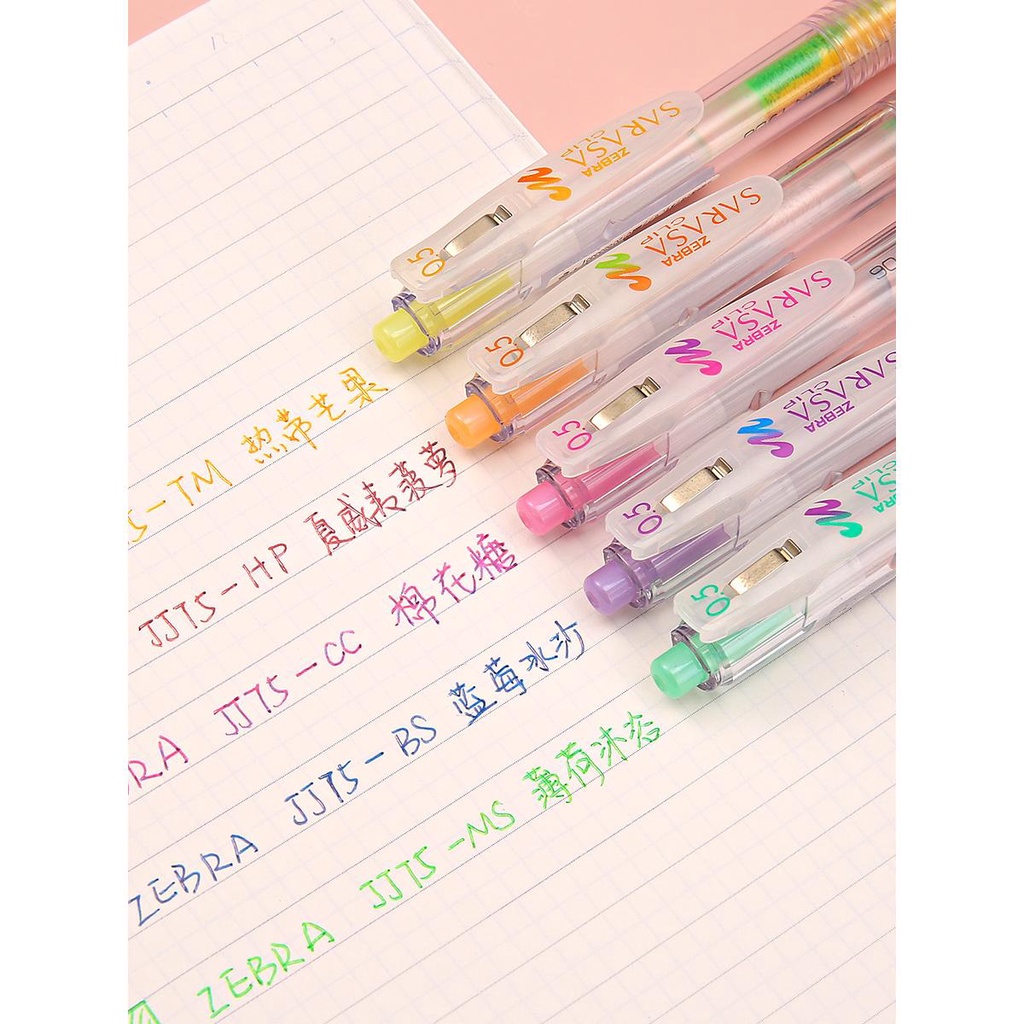 SARASA CLIP ZEBRA 0.5
SARASA CLIP ZEBRA 0.5
SARASA CLIP ZEBRA 0.5
SARASA CLIP ZEBRA 0.5
SARASA CLIP ZEBRA 0.5
5-TM 热带芒果
JJ75-HP 夏威夷菠萝
RA JJ75-CC 棉花糖
ZEBRA JJ75-BS 蓝莓冰沙
ZEBRA JJ75-MS 薄荷冰谷